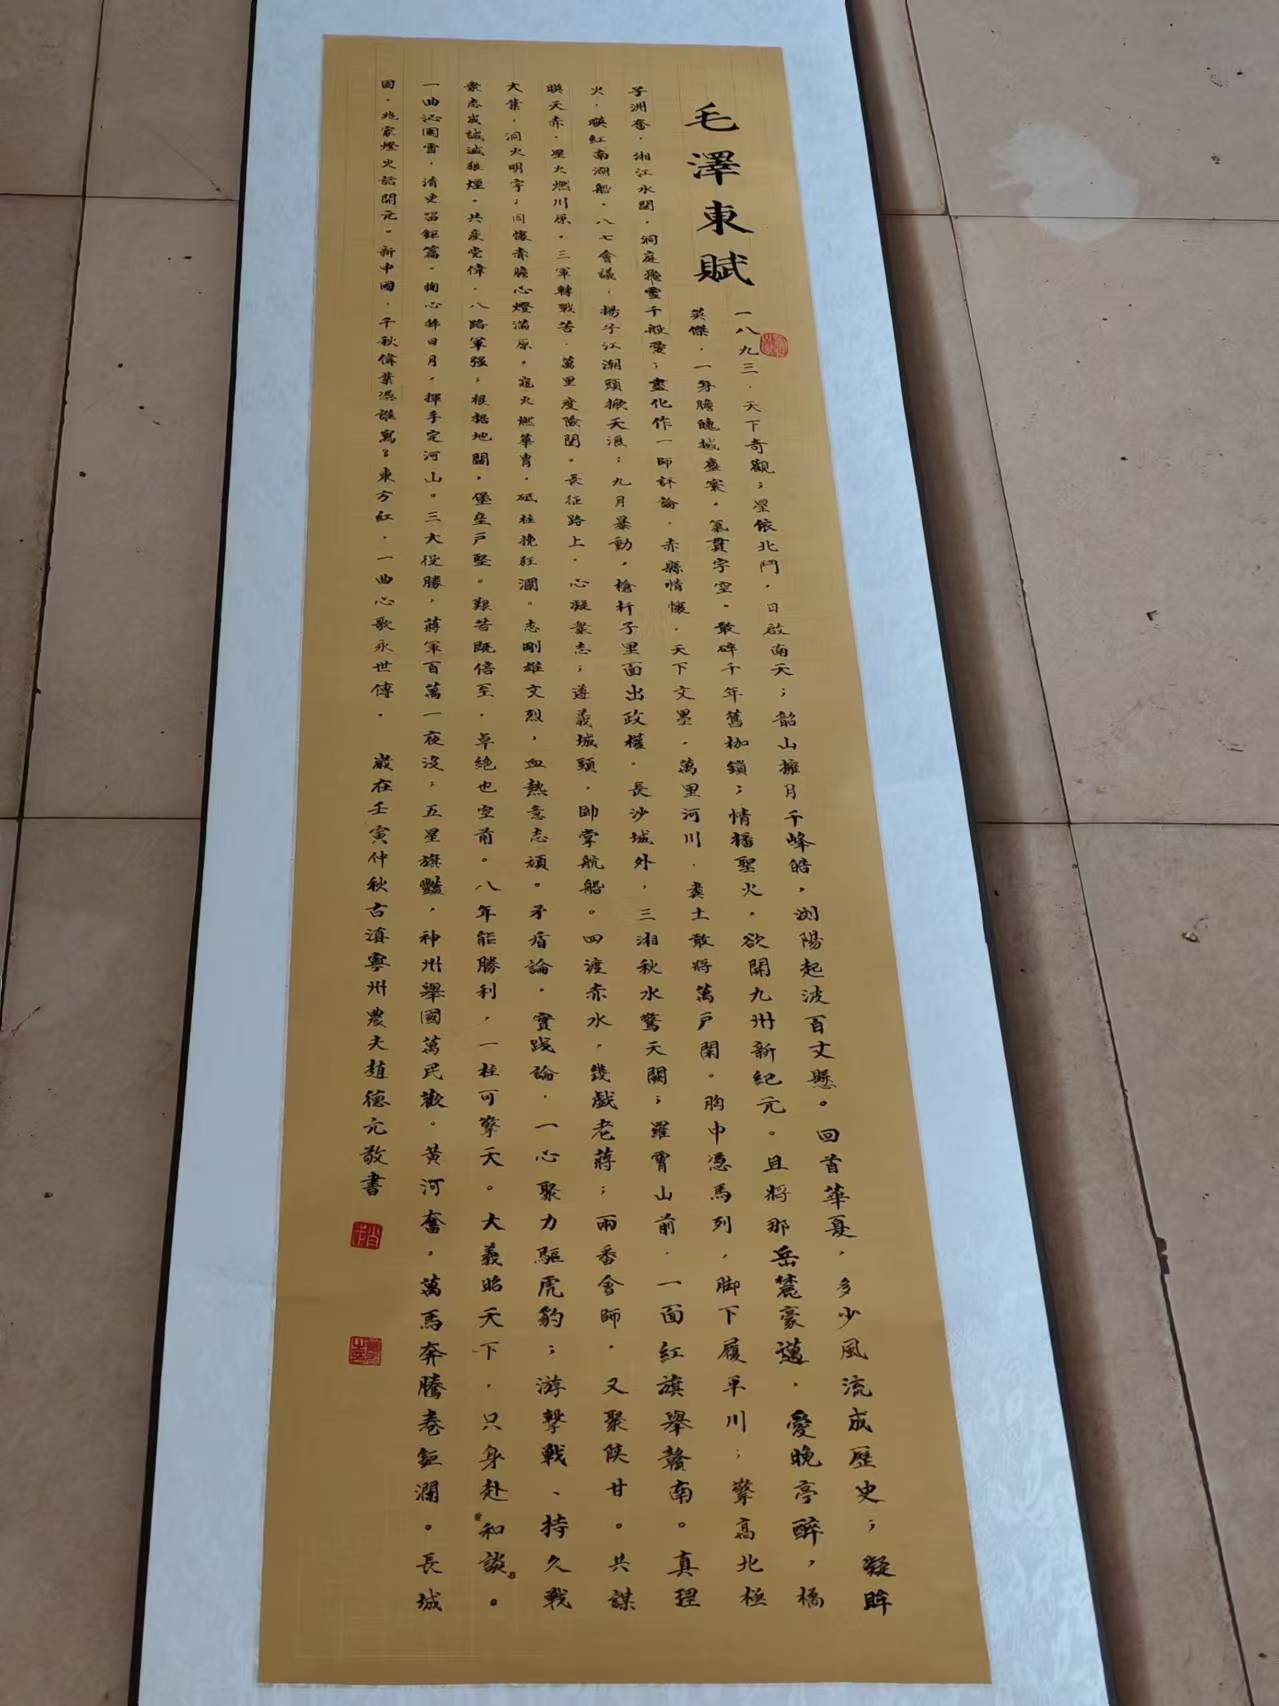 毛澤東賦
一八九三．天下奇觀；星依北鬥，日啟南天；韶山擁月千峰皓，浏陽起波百丈懸。回首華夏，多少風流成歷史；凝眸
英傑．一身膽魄越塵寰。氣貫宇空，敢碎千年舊枷鎖；情播聖火，欲開九州新紀元。且將那岳麓豪邁，愛晚亭醉，橘
子洲奮．湘江水闊．洞庭飛雪千般愛；盡化作一師評論．赤縣情懷．天下文墨．萬里河川．糞土敢將萬戶閑。胸中憑馬列，脚下履平川；擎高北極
火．映紅南湖船。八七會議；揚子江潮頭掀天浪；九月暴動，槍杆子里面出政權。長沙城外，三湘秋水驚天闕；羅霄山前．一面紅旗舉贛南。真理
映天赤．星火燃川原．三軍轉戰苦．萬里度險関。長征路上，心凝衆志；遵義城頭．帥掌航船。四渡赤水，幾戲老蔣；兩番會師，又聚陝甘。共謀
大業．洞火明宇；同懷赤膽心燈滿原。寇火燃華胄，砥柱挽狂瀾。志剛雄文烈，血熱意志頑。矛盾論，實踐論，一心聚力驅虎豹；游擊戰、持久戰
衆志成誠滅狼煙。共産党偉．八路軍强；根據地闊，堡壘戶堅。艱苦既倍至．卓絶也空前。八年能勝利，一柱可擎天。大義昭天下．只身赴和談。
一曲沁園雪，清史留鉅篇。掏心稱日月，揮手定河山。三大役勝，蔣軍百萬一夜没；五星旗艷，神州舉國萬民歡。黄河奮，萬馬奔騰卷鉅瀾。長城
固．兆家燈火話開元。新中國，千秋偉業憑誰寫？東方紅，一曲心歌永世傳． 歲在壬寅仲秋古滇寧州農夫趙德元敬書